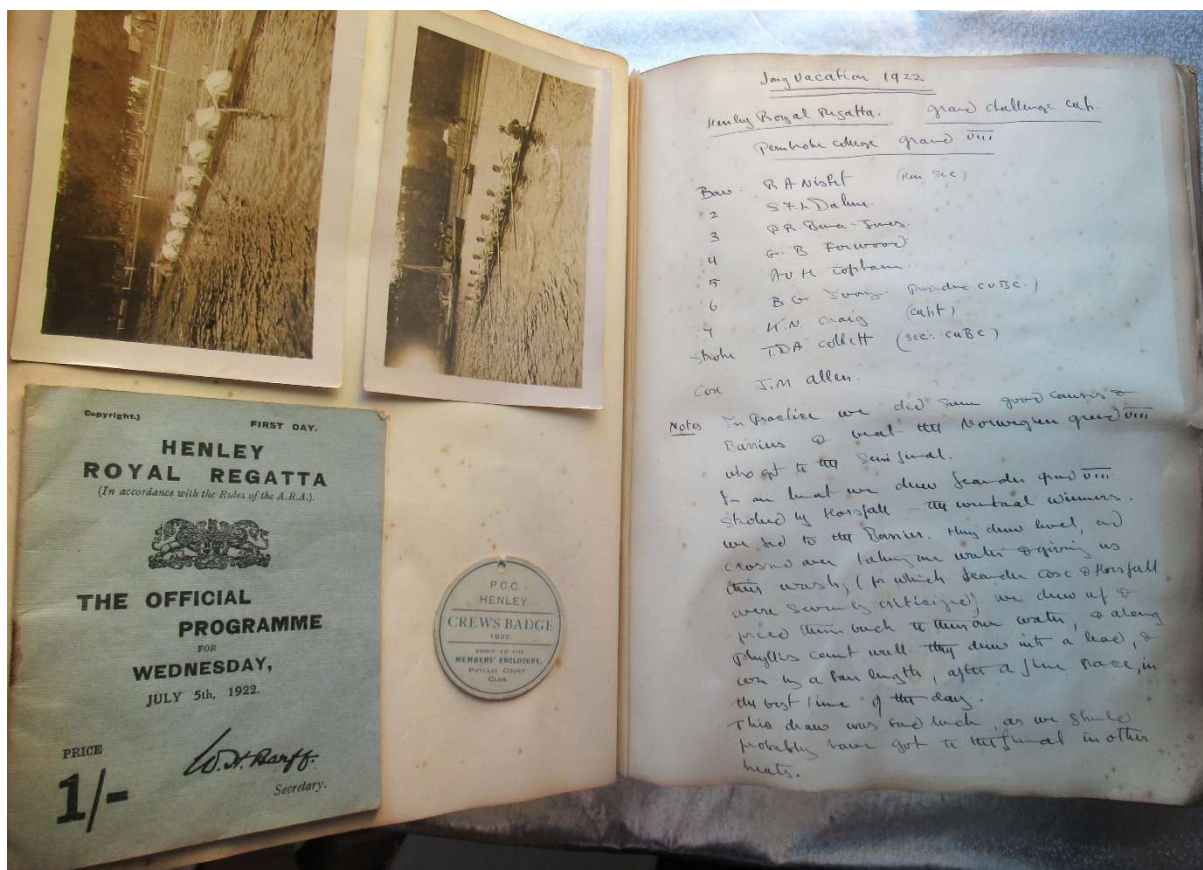 Copyright.)
FIRST DAY.
HENLEY
ROYAL REGATTA
(In accordance with the Rules of the A.R.A.).
THE OFFICIAL
PROGRAMME
FOR
WEDNESDAY,
JULY 5th, 1922.
PRICE
1/-
W. H. Barff.
Secretary.
P.C.C.
HENLEY
CREWS BADGE
1922.
ADMIT TO THE
MEMBERS' ENCLOSURE,
PHYLLIS COURT
CLUB.
Long Vacation 1922
Henley Royal Regatta. Grand Challenge Cup.
Pembroke College Grand VIII
Bow. R A Nisbet (Hon Sec)
2
3
4 G. B Forwood
5
6 B G (President CUBC.)
7 K.N. Craig (Capt)
Stroke T.D.A Collett (Sec: CUBC)
Cox J.M Allen.
Notes In Practice we did some good courses &
Barriers & beat the Norwegian grand VIII
who got to the Semi final.
In our heat we drew Leander grand VIII
stroked by Horsfall - the eventual winners.
we led to the Barrier. they drew level, and
crossed over taking our water & giving us
their wash; (for which Leander cox & Horsfall
were severely criticized) we drew up &
forced them back to their own water, & along
Phyllis Court wall they drew into a lead, &
won by a bare length, after a fine race, in
the best time of the day.
This draw was bad luck, as we should
probably have got to the final in other
heats.